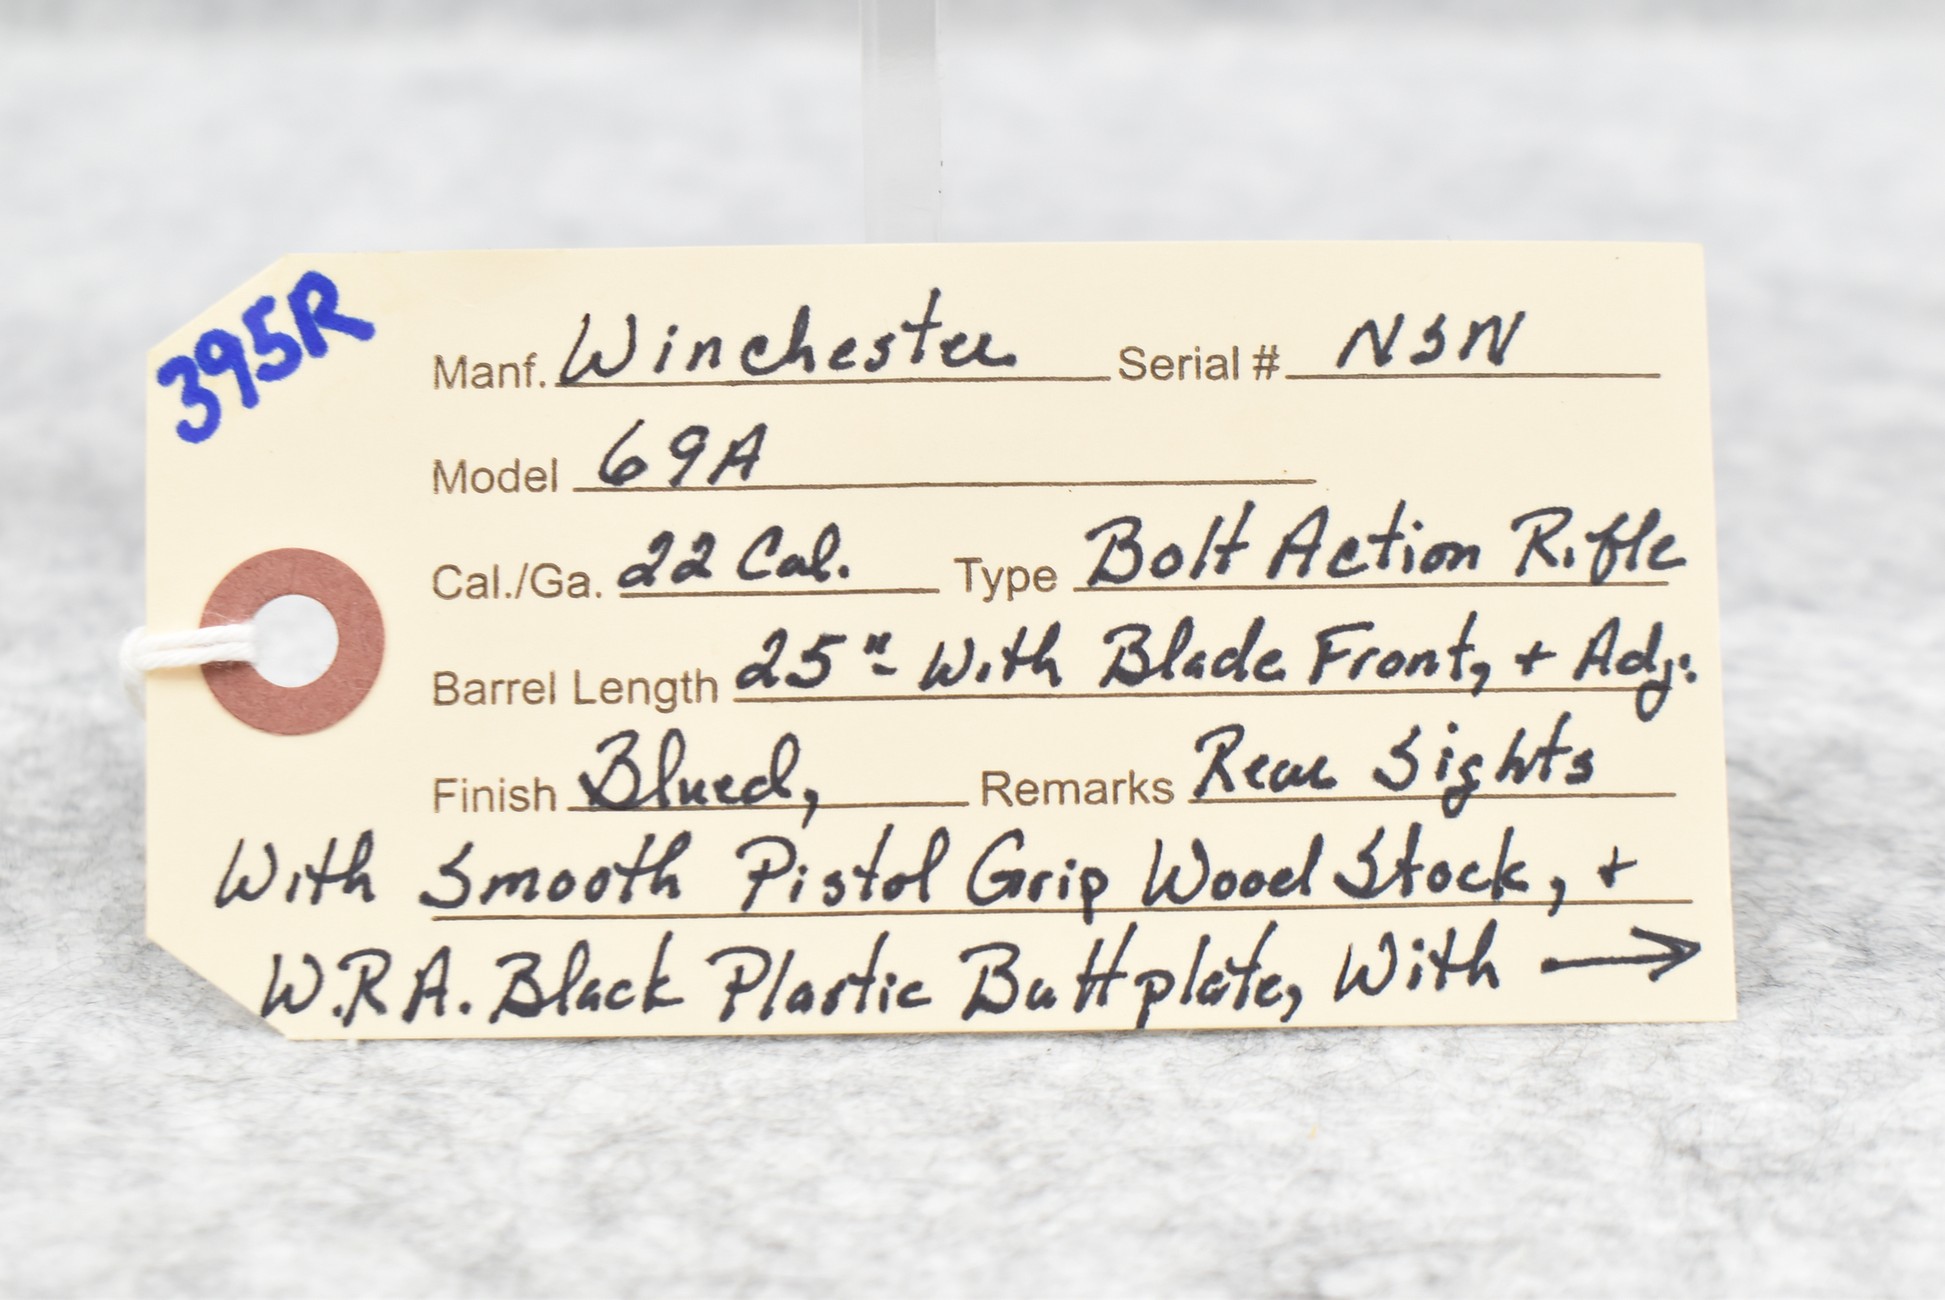 395R
Manf. Winchester Serial # NSN
Model 69A
Cal./Ga. 22 Cal. Type Bolt Action Rifle
Barrel Length 25"- With Blade Front, + Adj.
Finish Blued, Remarks Rear Sights
With Smooth Pistol Grip Wood Stock, +
W.R.A. Black Plastic Buttplate, With →